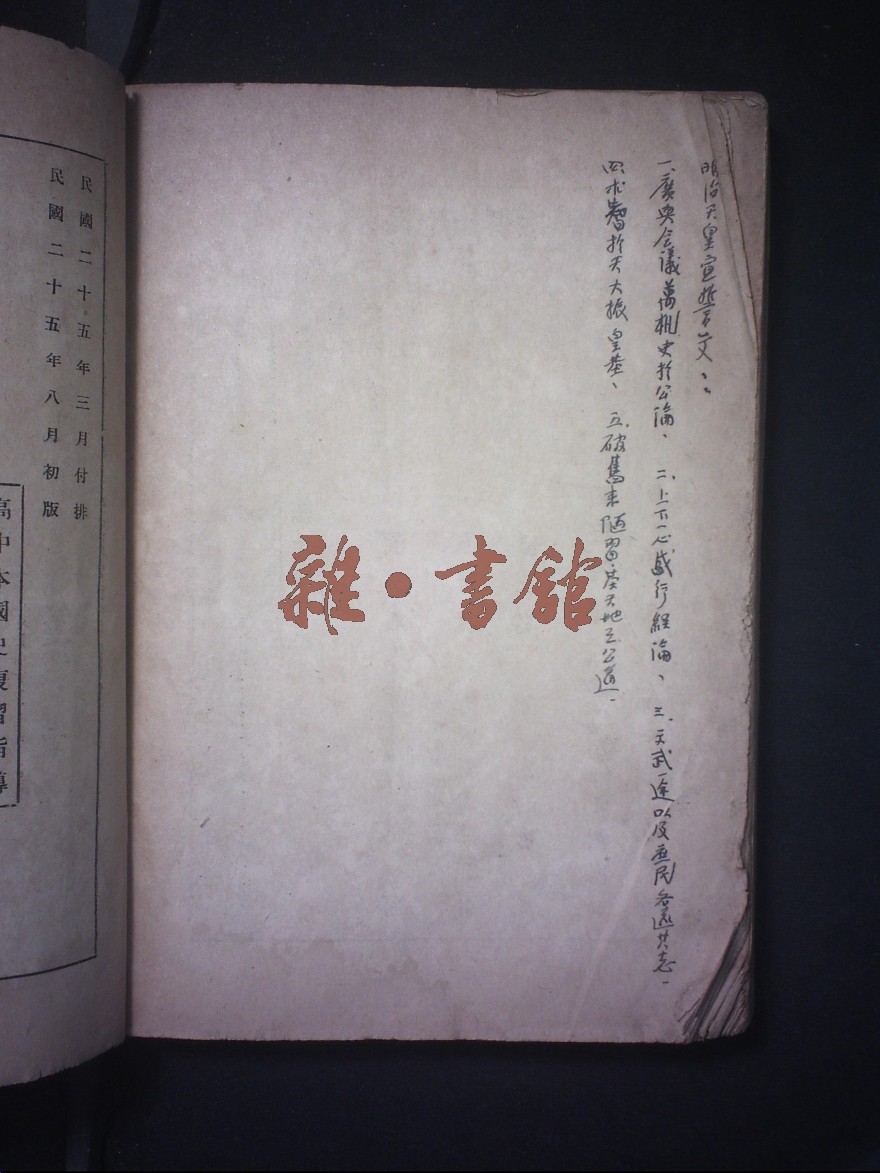 明治天皇宣誓文：
一、廣興会議萬機决於公論、二、上下一心盛行經綸、三、文武一途以及庶民各遂其志、
四求智於天大振皇基、五、破舊来陋習基天地之公道、
民國二十五年三月付排
民國二十五年八月初版
高中本國史復習指導
雜·書館